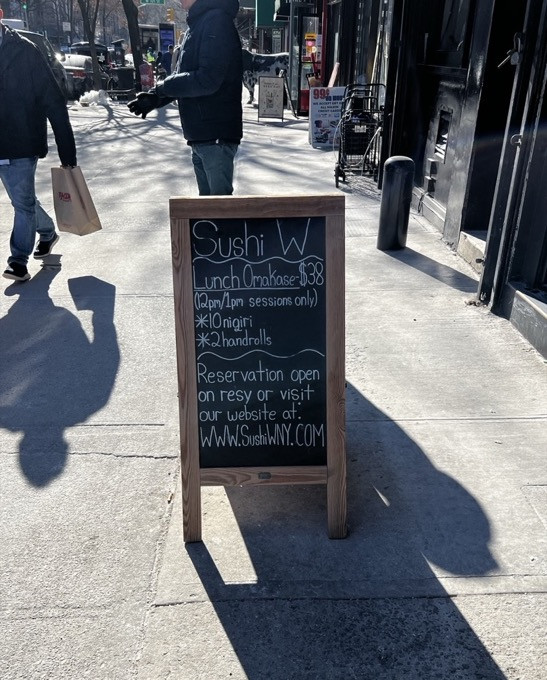 Sushi W
Lunch Omakase-$38
(12pm/1pm sessions only)
*10 nigiri
*2 handrolls
Reservation open
on resy or visit
our website at:
WWW.SushiWNY.COM
99¢